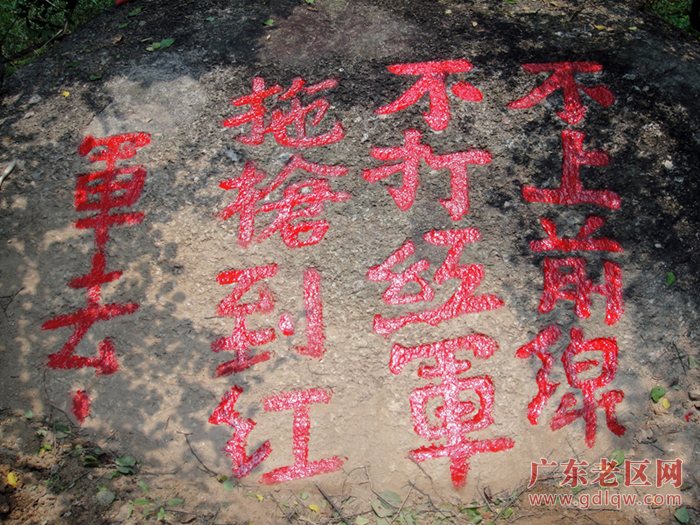 不上前線
不打红軍
拖槍到红
軍去！
广东老区网
www.gdlqw.com